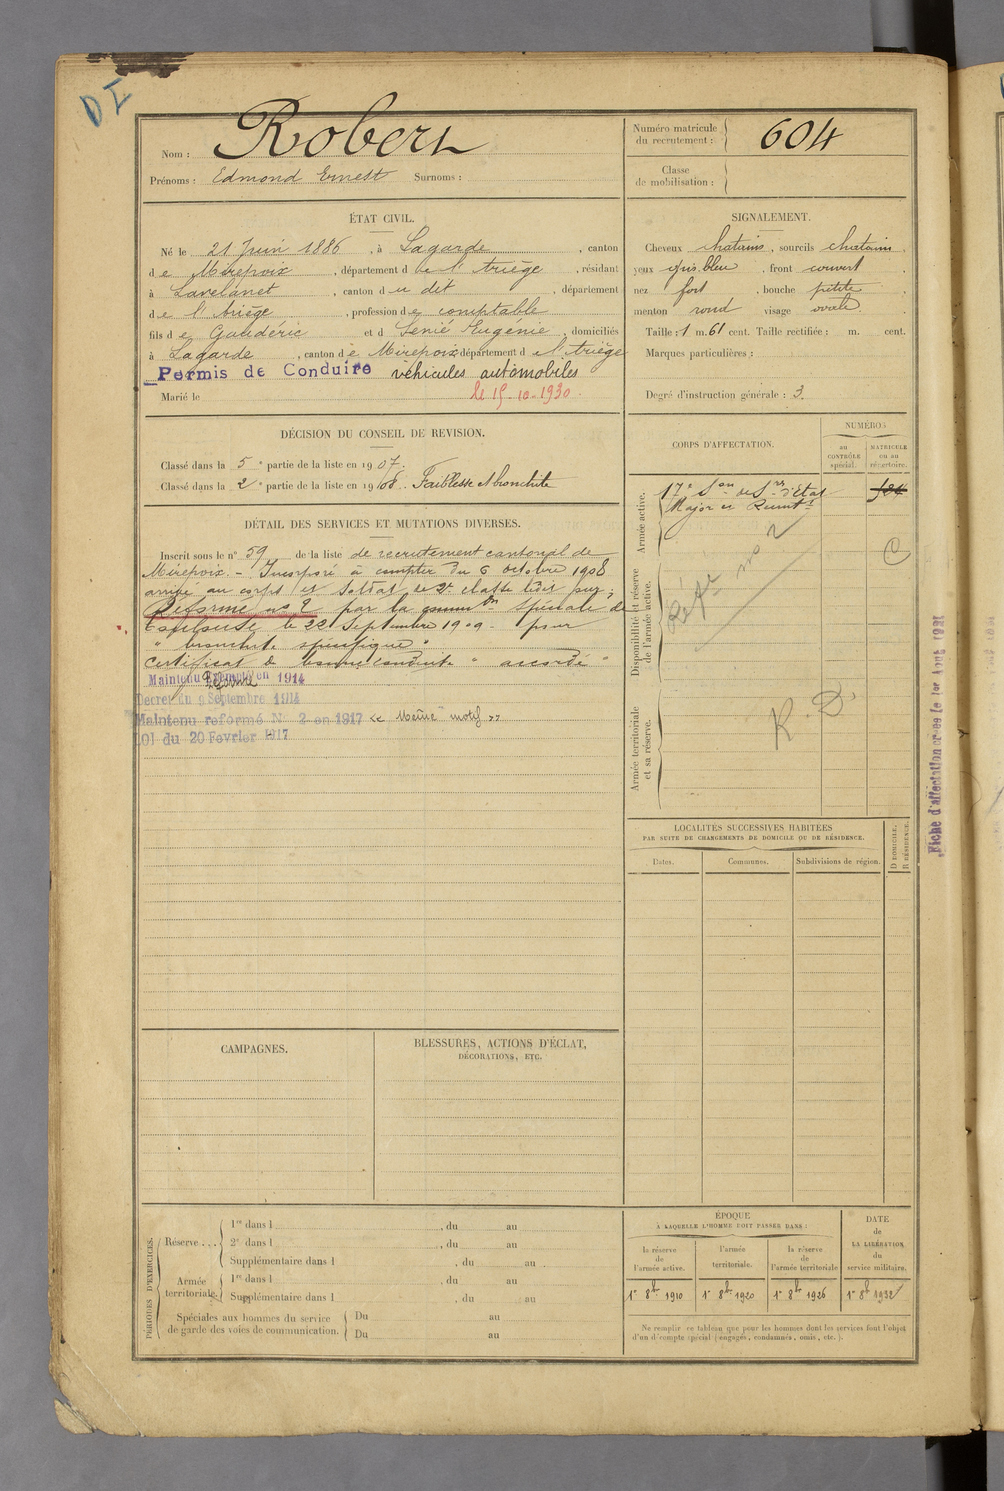 D I
Nom : Robert
Prénoms : Edmond Ernest Surnoms :
Numéro matricule du recrutement : 604
Classe de mobilisation :
ÉTAT CIVIL.
Né le 21 Juin 1886, à Lagarde, canton
de Mirepoix, département de l'Ariège, résidant
à Lavelanet, canton du dit, département
de l'Ariège, profession de comptable
fils de Gaudéric et de Senié Eugénie, domiciliés
à Lagarde, canton de Mirepoix département de l'Ariège
Permis de Conduire véhicules automobiles
Marié le le 15-10-1930.
SIGNALEMENT.
Cheveux chatains, sourcils chatains.
yeux gris bleu, front couvert.
nez fort, bouche petite.
menton rond visage ovale.
Taille : 1 m. 61 cent. Taille rectifiée : m. cent.
Marques particulières :
Degré d'instruction générale : 3.
DÉCISION DU CONSEIL DE REVISION.
Classé dans la 5e partie de la liste en 1907.
Classé dans la 2e partie de la liste en 1908. Faiblesse bronchite
DÉTAIL DES SERVICES ET MUTATIONS DIVERSES.
Inscrit sous le n° 59 de la liste de recrutement cantonal de
Mirepoix. - Incorporé à compter du 6 octobre 1908
arrivé au corps et soldat de 2e classe ledit jour,
Réformé no 2 par la comm on spéciale de
Toulouse le 22 Septembre 1909 - pour
" bronchite spécifique "
Certificat de bonne conduite " accordé "
Maintenu Exempté en 1914
Réformé
Decret du 9 Septembre 1914
Maintenu reformé N° 2 en 1917 << Même motif >>
LOI du 20 Fevrier 1917
CORPS D'AFFECTATION.
NUMÉROS
au CONTRÔLE spécial.
MATRICULE ou au répertoire.
Armée active.
17e Son de Sres d'Etat
Major et Recrutt
Disponibilité et réserve de l'armée active.
Réfé no 2
C
Armée territoriale et sa réserve.
R. D.
Fiche d'affectation créée le 1er Aout 1921
LOCALITÉS SUCCESSIVES HABITÉES
PAR SUITE DE CHANGEMENTS DE DOMICILE OU DE RÉSIDENCE.
Dates.
Communes.
Subdivisions de région.
D DOMICILE.
R RÉSIDENCE.
CAMPAGNES.
BLESSURES, ACTIONS D'ÉCLAT,
DÉCORATIONS, ETC.
PÉRIODES D'EXERCICES.
Réserve...
1re dans l , du au
2e dans l , du au
Supplémentaire dans l , du au .
Armée territoriale.
1re dans l , du au
Supplémentaire dans l , du au
Spéciales aux hommes du service
de garde des voies de communication.
Du au
Du au
ÉPOQUE
A LAQUELLE L'HOMME DOIT PASSER DANS :
la réserve de l'armée active.
l'armée territoriale.
la réserve de l'armée territoriale
DATE de LA LIBÉRATION du service militaire.
1er 8bre 1910
1er 8bre 1920
1er 8bre 1926
1er 8bre 1932
Ne remplir ce tableau que pour les hommes dont les services font l'objet
d'un décompte spécial (engagés, condamnés, omis, etc.).